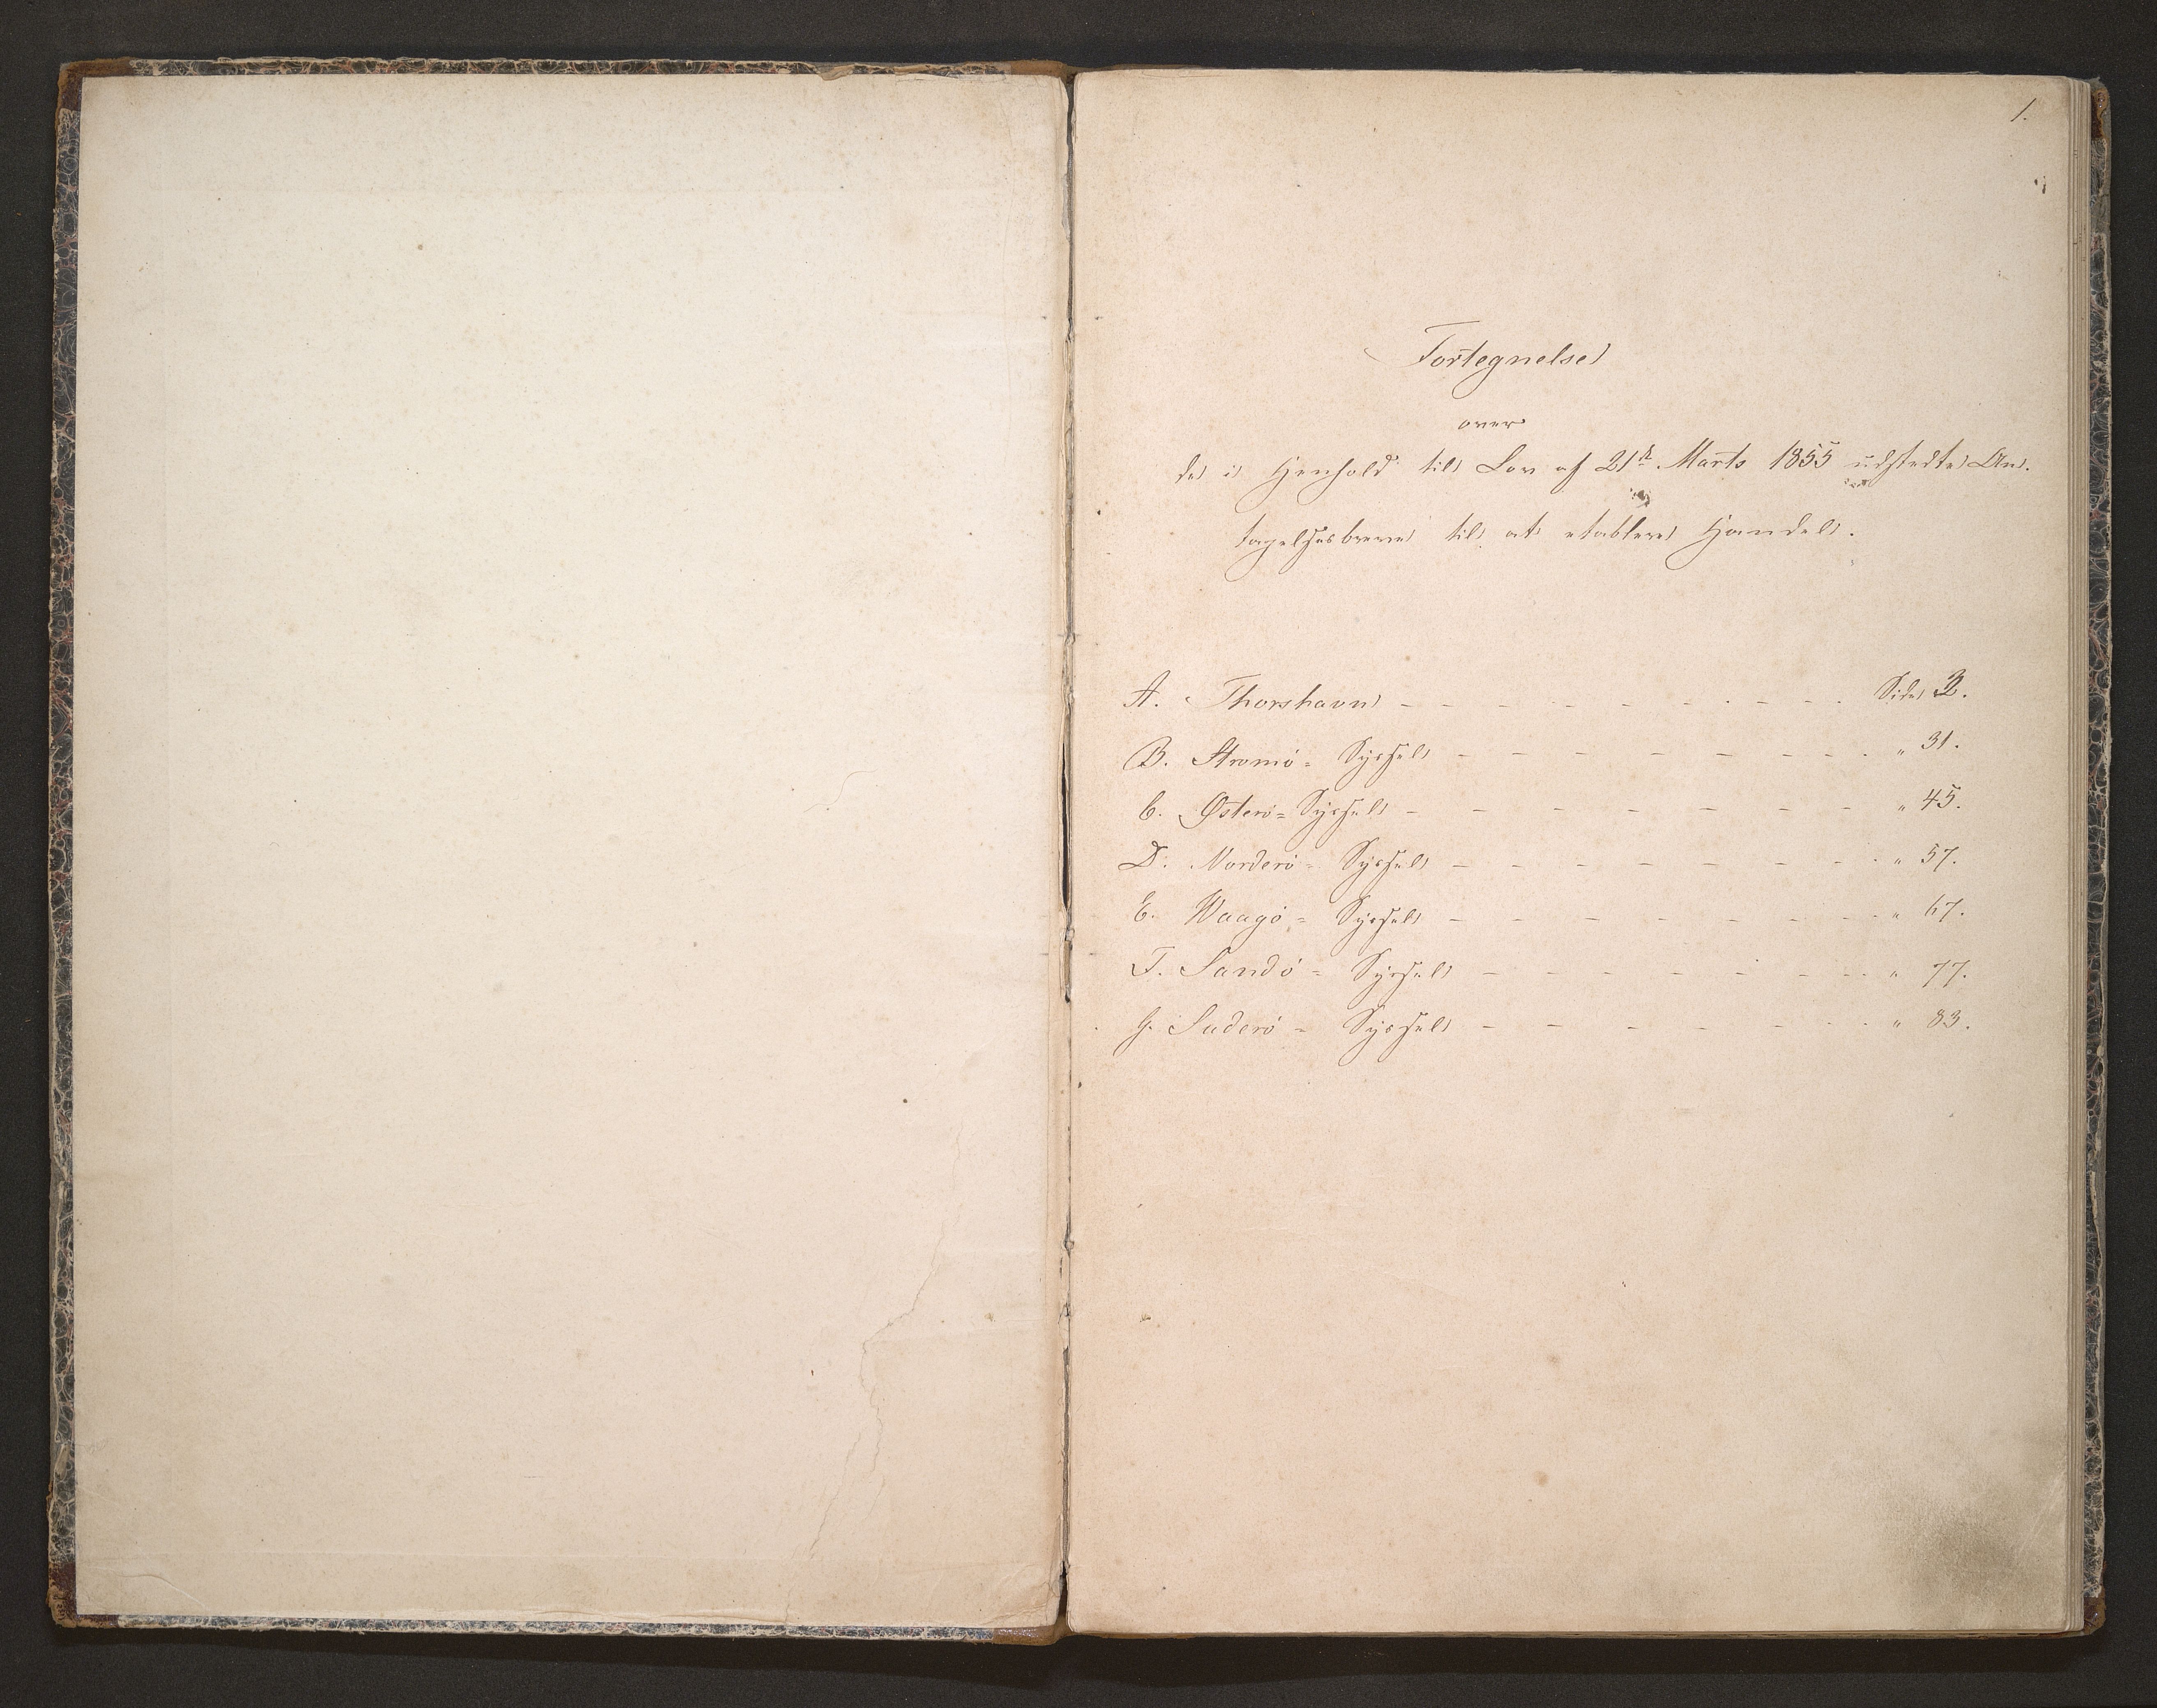 1.
Fortegnelse
over
de i Henhold til Lov af 21de Marts 1855 udstedte An-
tagelsesbreve til at etablere Handel.
A. Thorshavn - - - - - - - - - - Side 2.
B. Strømø= Syssel - - - - - - - - " 31.
C. Østerø= Syssel - - - - - - - - " 45.
D. Norderø= Syssel - - - - - - - - " 57.
E. Waagø= Syssel - - - - - - - - " 67.
F. Sandø= Syssel - - - - - - - - " 77.
G. Suderø= Syssel - - - - - - - - " 83.